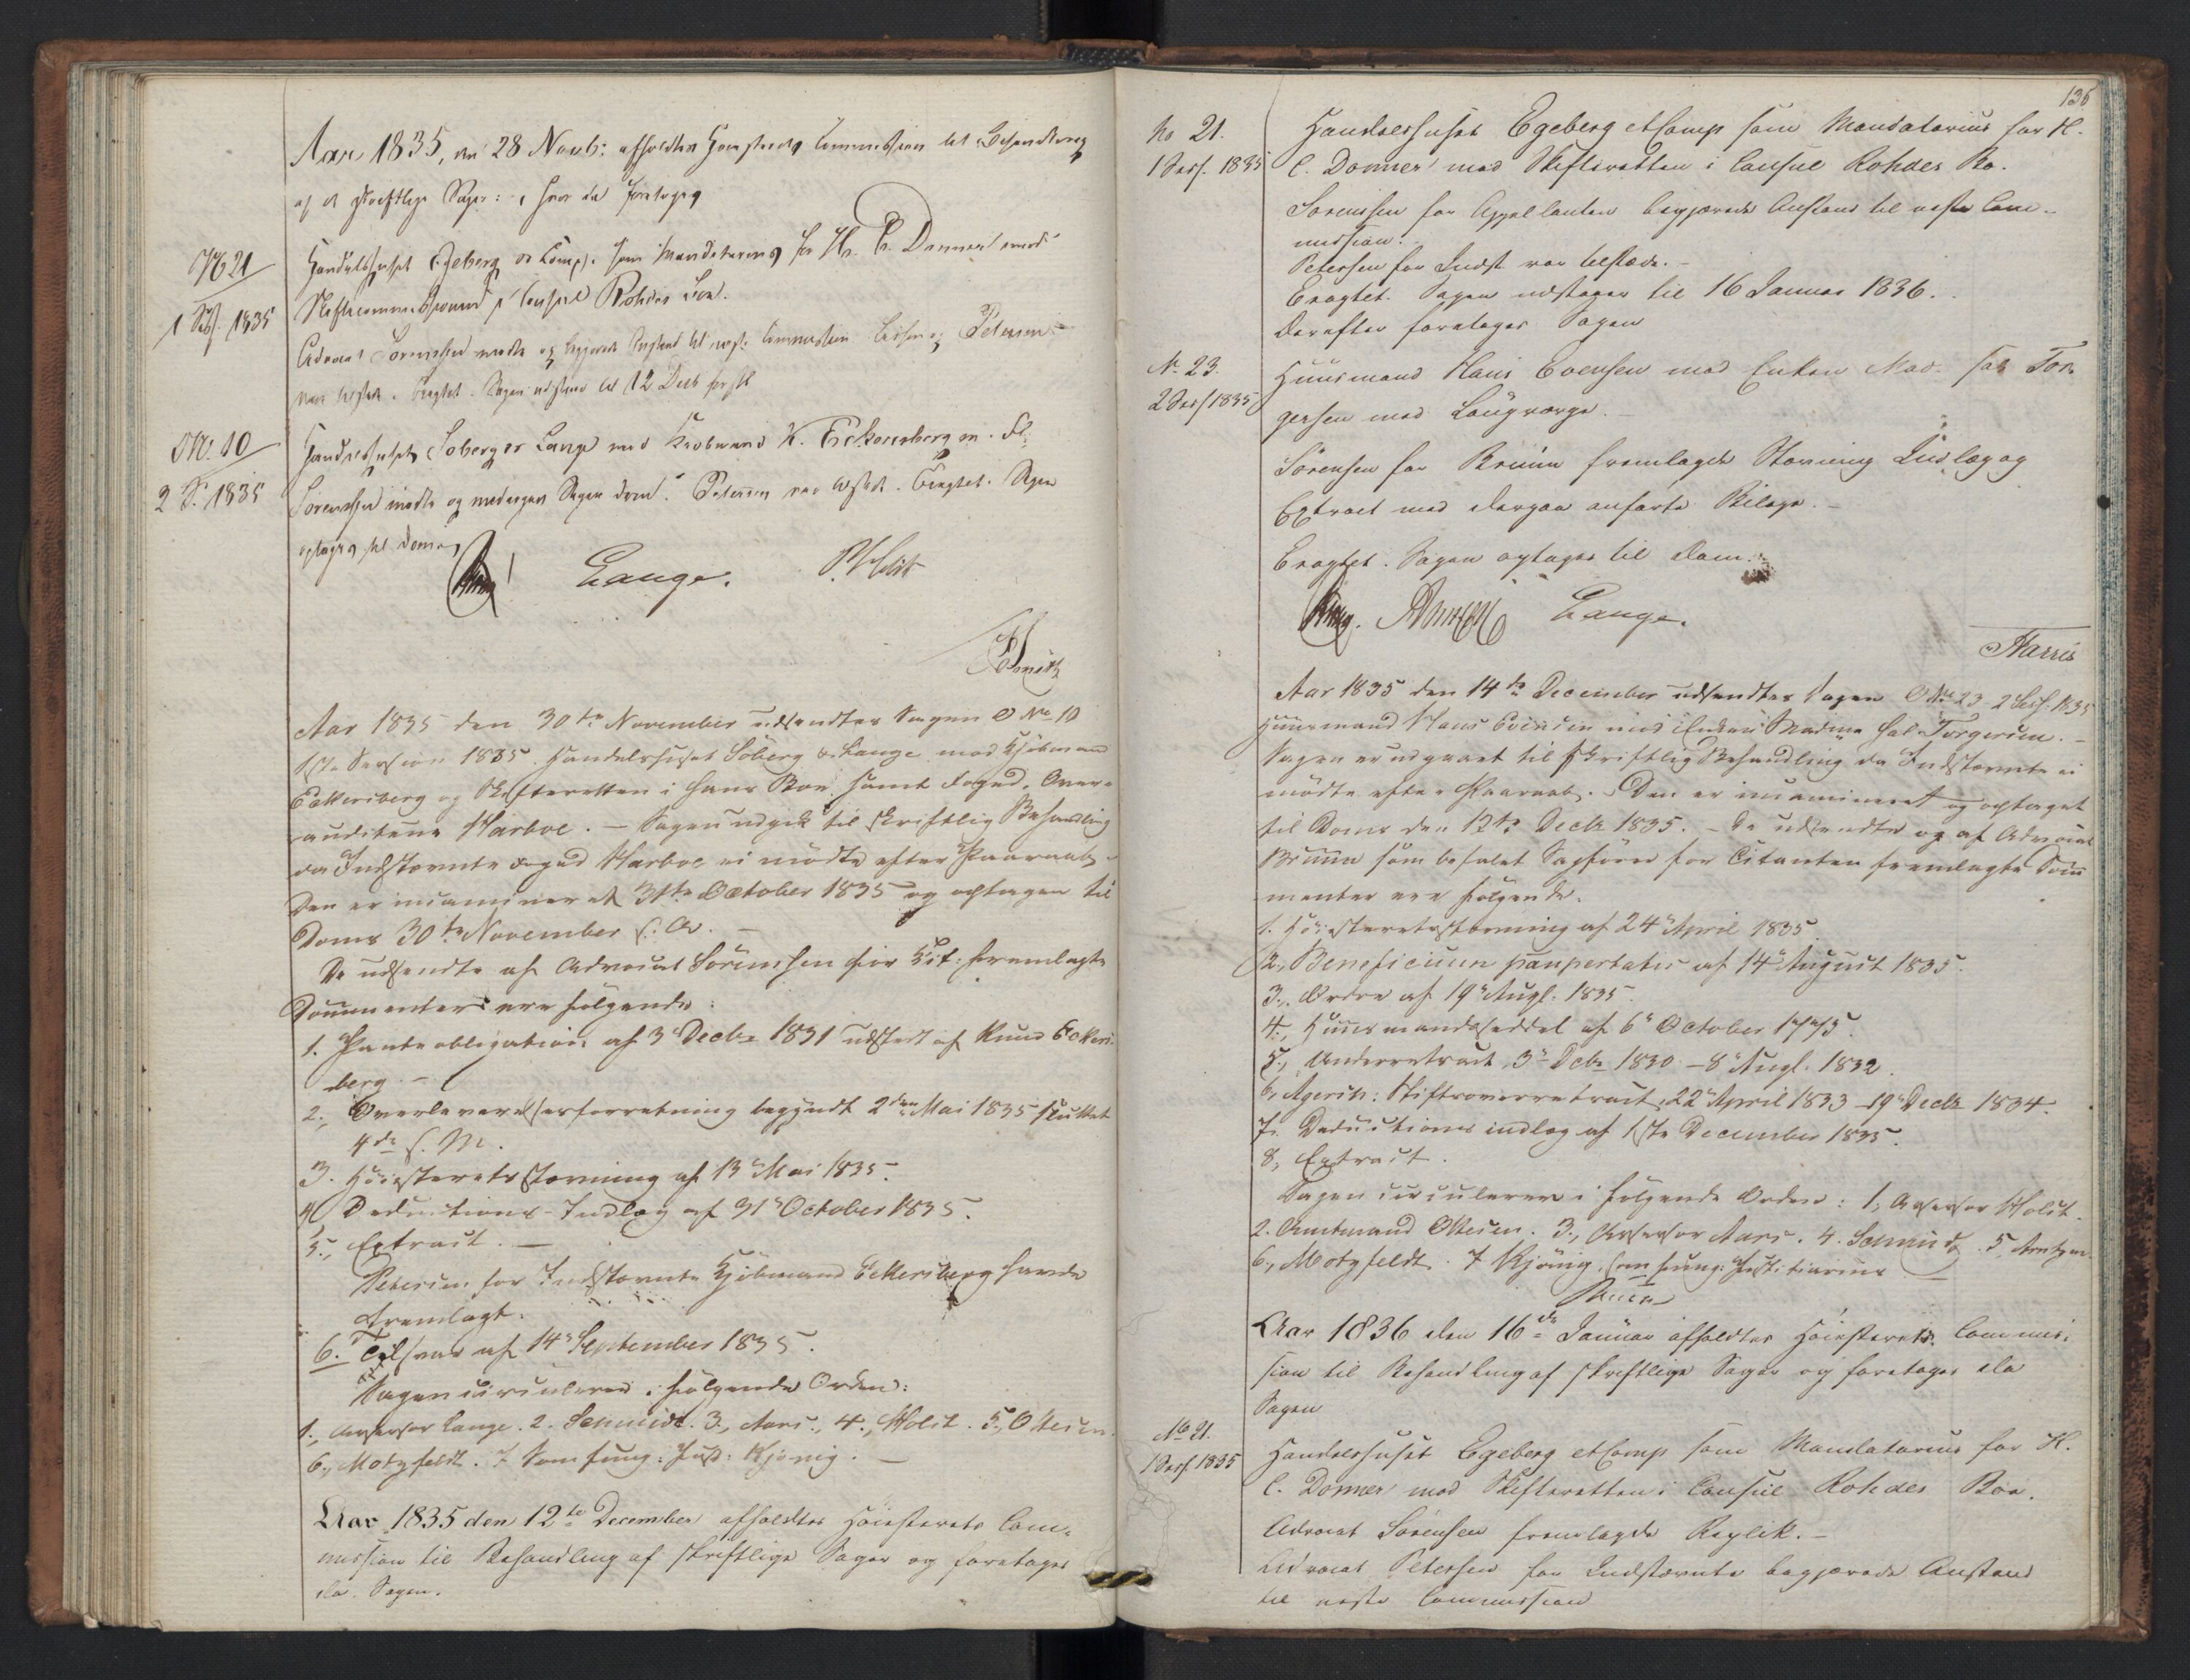 Aar 1835, den 28 Novb: afholdtes Høiesterets Commission til Behandling
af de skriftlige Sager: , hvor da foretoges
No 21
1 Sess. 1835
Handelshuset Egeberg & Comp. som Mandatarius for Hr. C. Donner mod
Skiftecommissionen i Consul Rohdes Boe.
Advocat Sørenssen mødte og begjerede Anstand til næste Commission Petersen
var tilstede. Eragtet. Sagen udstaaer til 12 Decb
No. 10
2 S. 1835
Handelshuset Soberg & Lange mod Kiøbmand K. Eckersberg m. Fl.
Sørenssen mødte og Sagen Petersen var tilstede. Eragtet. Sagen
optages til Doms
Lange. P. Holst
Schmidt
Aar 1835 den 30te November udsendtes Sagen No 10
1ste Session 1835. Handelshuset Soberg & Lange mod Kjøbmand
Eckersberg og Skifteretten i hans Boe samt Foged, Over-
auditeur Harboe. – Sagen udgik til skriftlig Behandling
da Indstævnte Foged Harboe ei mødte efter Paaraab.
Den er incamineret 31te October 1835 og optagen til
Doms 30te November s. A. –
De udsendte af Advocat Sørensen for Cit: fremlagte
Documenter ere følgende:
1. Panteobligation af 3die Decbr 1831 udstedt af Knud Eckers-
berg. –
2., Overleverelsesforretning begyndt 2den Mai 1835 sluttet
4de s. M.
3. Høiesteretsstævning af 13de Mai 1835.
4, Deductions-Indlæg af 31te October 1835.
5., Extract. –
Petersen for Indstævnte Kjøbmand Eckersberg havde
fremlagt.
6. Tilsvar af 14de September 1835.
Sagen circulerer i følgende Orden:
1., Assessor Lange. 2. Schmidt. 3., Aars., 4., Holst. 5., Ottesen.
6., Motzfeldt. 7 Som fung: Just: Kjønig. –
Aar 1835 den 12te December afholdtes Høiesterets Com-
mission til Behandling af skriftlige Sager og foretoges
da Sagen.
136
No 21.
1 Sess. 1835
Handelshuset Egeberg et Comp som Mandatarius for H.
C. Donner mod Skifteretten i Consul Rohdes Bo.
Sørenssen for Appellanten begjærede Anstand til næste Com-
mission.
Petersen for Indst. var tilstede. –
Eragtet. Sagen udstaaer til 16 Januar 1836.
Derefter foretoges Sagen
No 23.
2 Sess 1835
Huusmand Hans Evensen mod Enken Mad. sal Tor-
gersen med Laugværge. –
Sørensen for Bruun fremlagde Stævning Indlæg og
Extract med derpaa anførte Bilage. –
Eragtet. Sagen optages til Dom.
Lange.
Aar 1835 den 14de December udsendtes Sagen No 23 2 Sess. 1835
Huusmand Hans Evensen mod Enken Madme sal Torgersen. –
Sagen er udgaaet til skriftlig Behandling da Indstævnte ei
mødte efter Paaraab. Den er incamineret og optaget
til Doms den 12te Decbr 1835. – De udsendte og af Advocat
Bruun som befalet Sagfører for Citanten fremlagte Docu-
menter ere følgende.
1. Høiesteretsstævning af 24de April 1835.
2., Beneficium paupertatis af 14de August 1835.
3., Ordre af 19de Augst. 1835.
4., Huusmandsseddel af 6te October 1775.
5., Underretsact, 3die Decbr 1830 – 8de Augst. 1832.
6, Agersh: Stiftsoverretsact, 22de April 1833 – 19de Decbr 1834.
7. Deductions indlæg af 1ste December 1835.
8, Extract.
Sagen circulerer i følgende Orden: 1, Assessor Holst
2. Amtmand Ottesen. 3., Assessor Aars. 4. Schmidt. 5,
6., Motzfeldt. 7 Kjønig, som fung: Justitiarius –
Aar 1836 den 16de Januar afholdtes Høiesterets Commis-
sion til Behandling af skriftlige Sager og foretoges da
Sagen
No 21.
1 Sess 1835
Handelshuset Egeberg et Comp som Mandatarius for H.
C. Donner mod Skifteretten i Consul Rohdes Boe.
Advocat Sørensen fremlagde Replik. –
Advocat Petersen for Indstævnte begjærede Anstand
til næste Commission